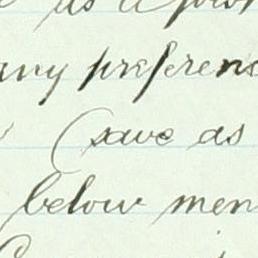 any preferenc
(save as
below men